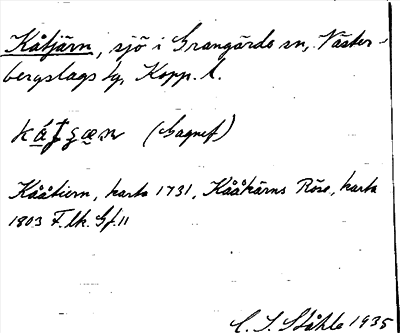 Kåtjärn, sjö i Grangärde sn, Väster-
bergslags hg, Kopp. l.
(Sagnef)
Kååkiern, karta 1731, Kååkärns Röse, karta
1803 F. lk. Gf. 11
C. I. Ståhle 1935